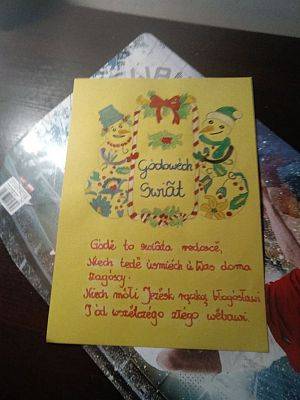 Gòdowëch
Swiãt
Gòdë to swiãta redoscë,
Niech tedë ùsmiéch ù Was doma
zagòscy.
Niech môłi Jezësk rączką błogòsławi
I òd wszëtczégò złégò wëbawi.